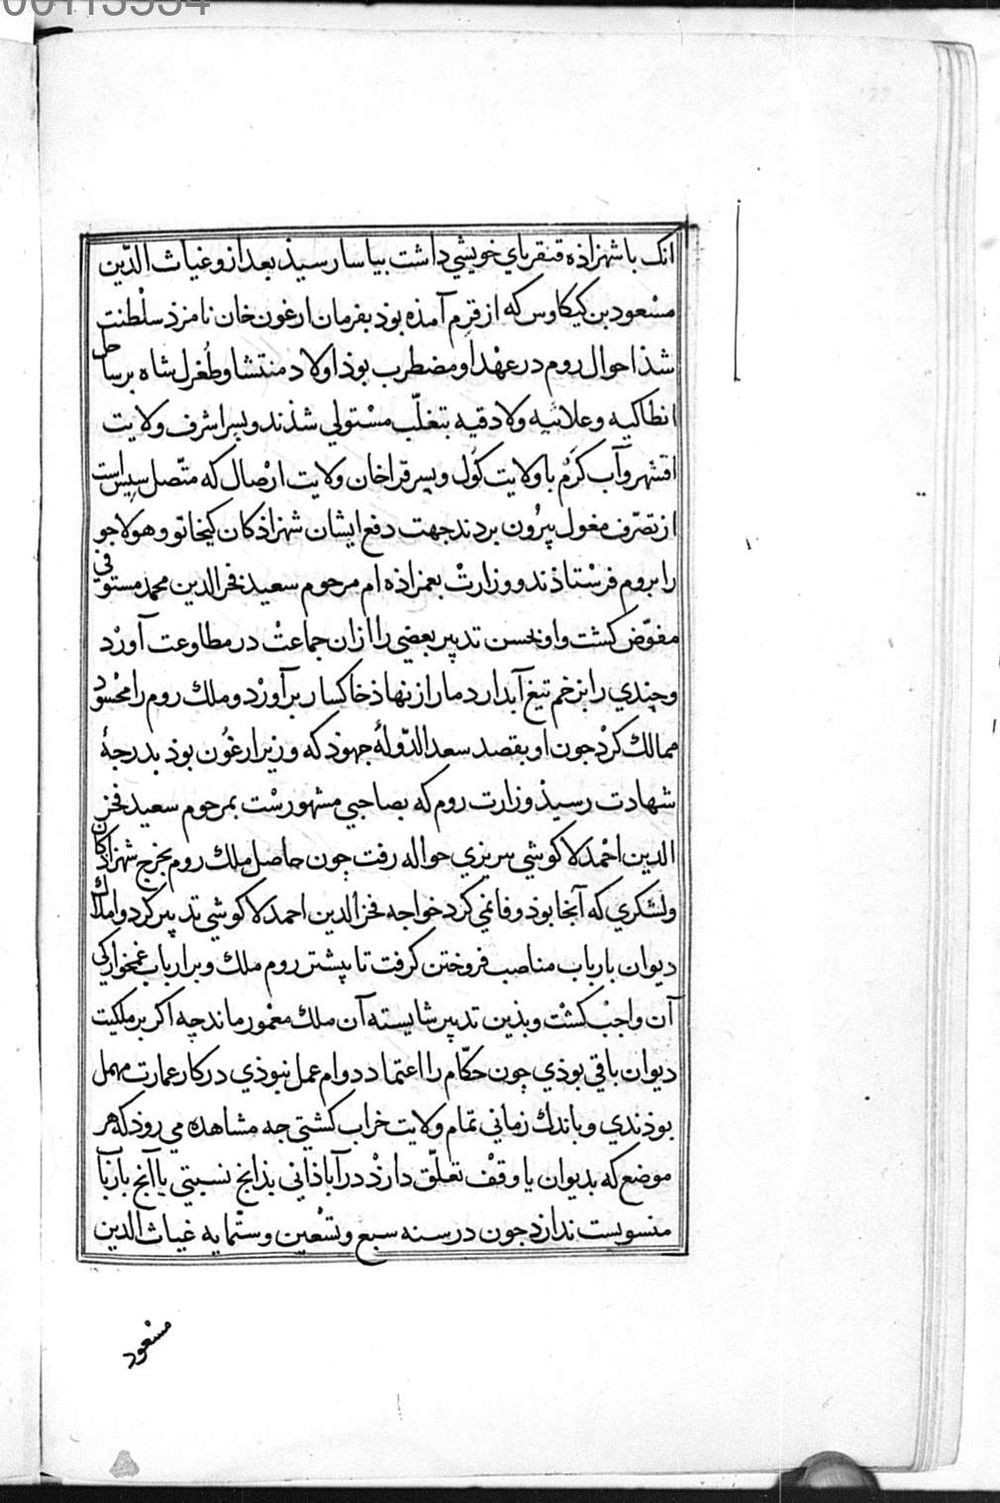 00113934
انک با شهزاذه قنقرتای خویشی داشت بیاسا رسیذ بعد ازو غیاث الدّین
مسْعود بن کیکاوس که از قرم آمذه بوذ بفرمان ارغون خان نامزذ سلْطنت
شذ احوال روم در عهْد او مضطرب بوذ اولاد منتشا و طُغرل شاه بر ساحل
انطاکیه و علائیه ولادقیه بتغلّب مسْتولی شذند و پسر اشرف ولایت
اقشهر و آب کَرْم با ولایت کَول و پسر قراخان ولایت ارْصال که متّصل سیس است
از تصرّف مغول بیرُون بردند جهت دفع ایشان شهزاذکان کیخاتو و هولاجو
را بروم فرسْتاذند و وزارتْ بعمزاذه ام مرحوم سعید فخر الدین محمد مستوْفی
مفوّض کشت و او بحسن تدبیر بعضی را ازان جماعتْ در مطاوعت آورْد
و چندی را بزخم تیغ آبدار دمار از نهاذ خاکسار برآورْد و ملك روم را محْسود
ممالك کرْد جون او بقصد سعد الدّولهٔ جهوذ که وزیر ارغُون بوذ بدرجهٔ
شهادت رسیذ وزارت روم که بصاحبی مشهورسْت بمرحوم سعید فخر
الدین احْمد لاکوشی تبریزی حواله رفت چون حاصل ملك روم بخرج شهزاذکان
و لشکری که آنجا بوذ وفا نمی کرد خواجه فخر الدین احمد لاکوشی تدبیر کرد و املاك
دیوان بارباب مناصب فروختن کرفت تا بیشتر روم ملك و بر ارباب غمخوارکی
آن واجبْ کشْت و بذین تدبیر شایسته آن ملك معْمور ماند چه اکر بر ملکیت
دیوان باقی بوذی چون حکّام را اعتماد دوام عمل نبوذی در کار عمارت مهمل
بوذندی و باندك زمانی تمام ولایت خراب کشتی جه مشاهده می روذ که هر
موضع که بدیوان یا وقْف تعلّق دارذ در آباذانی بذانج نسبتی یا آنج باربا
منسوبست نداذرد جون در سنه سبع و تسْعین و ستْمایه غیاث الدین
مسْعود